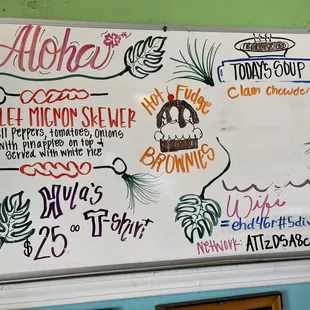 Aloha
LET MIGNON SKEWER
ll PEPPERS, TOMATOES, ONIONS
WITH PINAPPLES ON TOP +
SERVED WITH WHITE RICE
Hula's
T-Shirt
$25⁰⁰
Hot Fudge
BROWNIES
TODAY'S SOUP
Clam Chowder
Wifi
=
NETWORK: